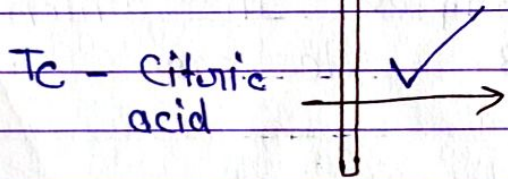 Tc - Cituric
acid